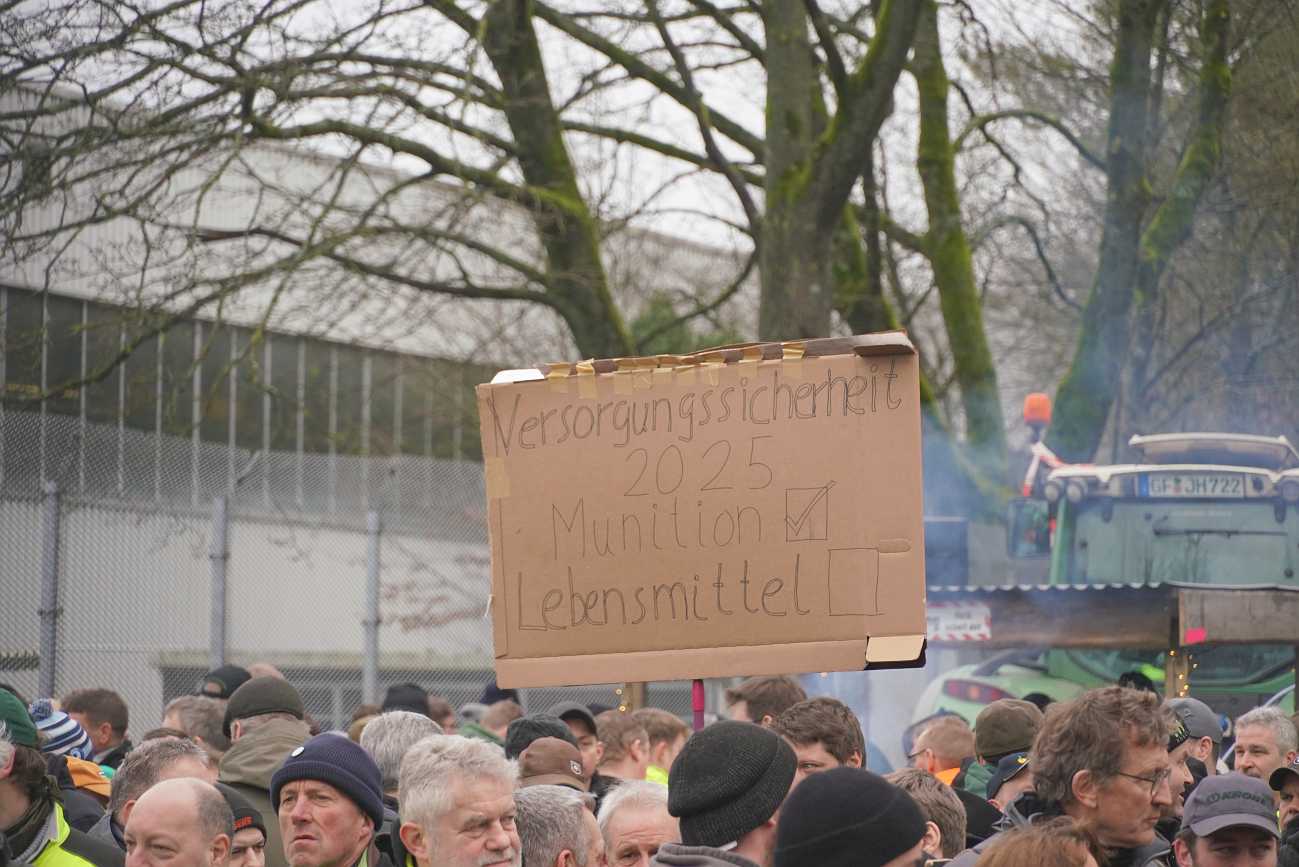 Versorgungssicherheit
2025
Munition
Lebensmittel
GF JH722
KRONE